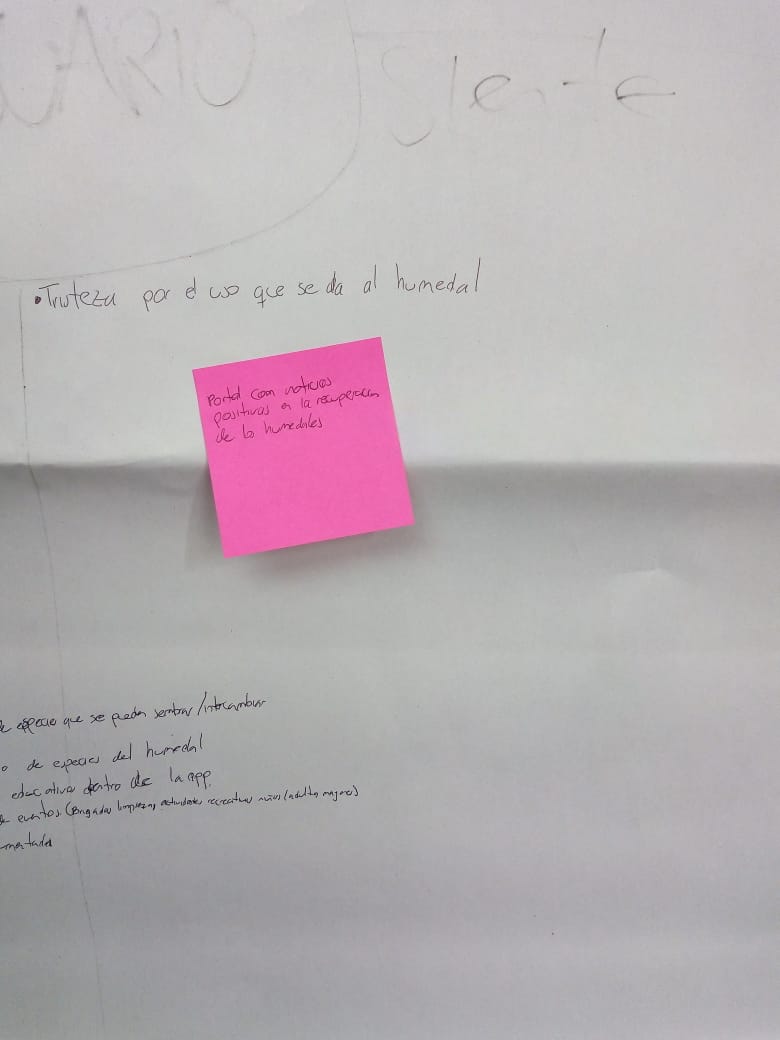 UARIO
Siente
• Tristeza por el uso que se da al humedal
Portal con noticias
positivas en la recuperación
de lo humedales
especie que se pueden sembrar/intercambiar
o de especies del humedal
educativa dentro de la app.
eventos (Brigadas limpieza, actividades recreativas niños/adultos mayores)
mentada